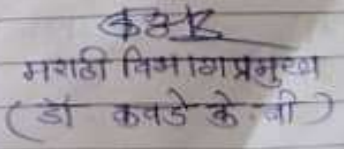 मराठी विभागप्रमुख
(डॉ कवडे के. बी)